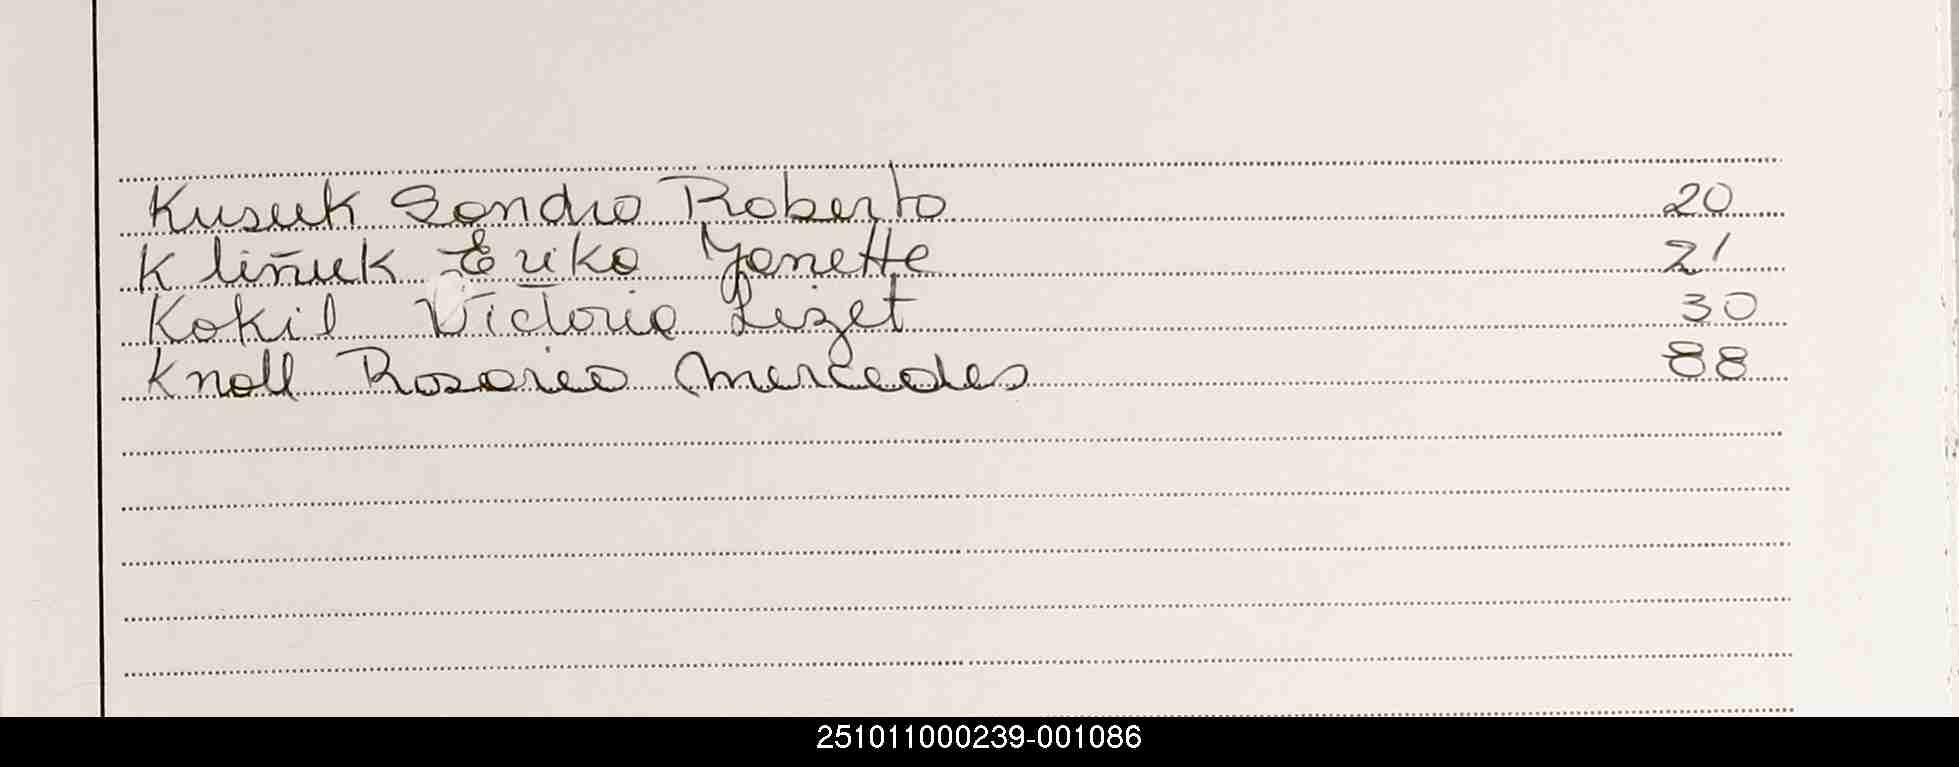 Kusuk Sandro Roberto 20
Kliñuk Erika Yanette 21
Kokil Victoria Lizet 30
Knoll Rosario Mercedes 88
251011000239-001086